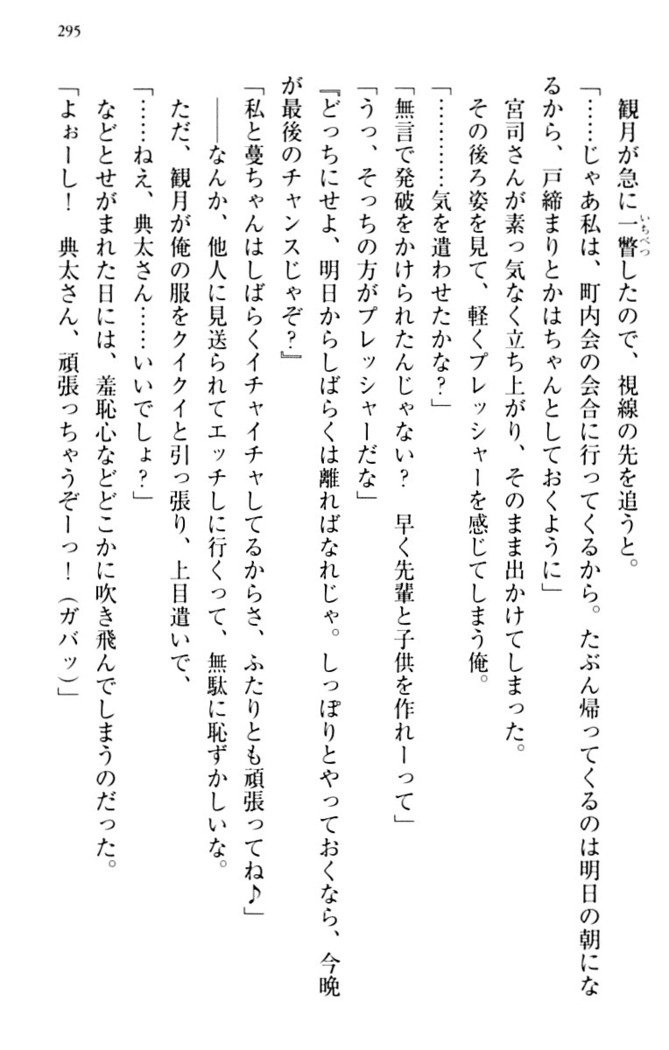 295
観月が急に一瞥したので、視線の先を追うと。
いちべつ
「……じゃあ私は、町内会の会合に行ってくるから。たぶん帰ってくるのは明日の朝にな
るから、戸締まりとかはちゃんとしておくように」
宮司さんが素っ気なく立ち上がり、そのまま出かけてしまった。
その後ろ姿を見て、軽くプレッシャーを感じてしまう俺。
「…………気を遣わせたかな？」
「無言で発破をかけられたんじゃない？　早く先輩と子供を作れーって」
「うっ、そっちの方がプレッシャーだな」
『どっちにせよ、明日からしばらくは離ればなれじゃ。しっぽりとやっておくなら、今晩
が最後のチャンスじゃぞ？』
「私と蔓ちゃんはしばらくイチャイチャしてるからさ、ふたりとも頑張ってね♪」
――なんか、他人に見送られてエッチしに行くって、無駄に恥ずかしいな。
ただ、観月が俺の服をクイクイと引っ張り、上目遣いで、
「……ねえ、典太さん……いいでしょ？」
などとせがまれた日には、羞恥心などどこかに吹き飛んでしまうのだった。
「よぉーし！　典太さん、頑張っちゃうぞーっ！（ガバッ）」